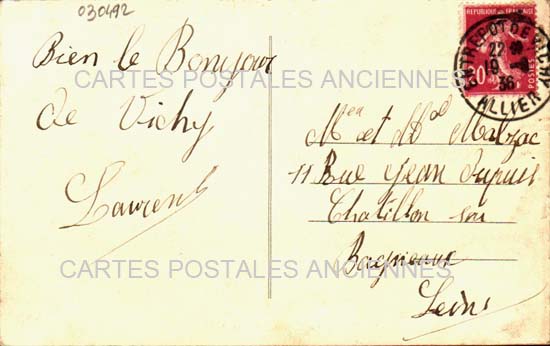 030492
Bien le Bonjour
de Vichy
Laurent
REPUBLIQUE FRANÇAISE
POSTES
ENTREPOT DE VICHY
22
36
ALLIER
Mr et Md Malzac
11 Rue Jean Dupuis
Chatillon sou
Bagneaux
Seine
CARTES POSTALES ANCIENNES
CARTES POSTALES ANCIENNES